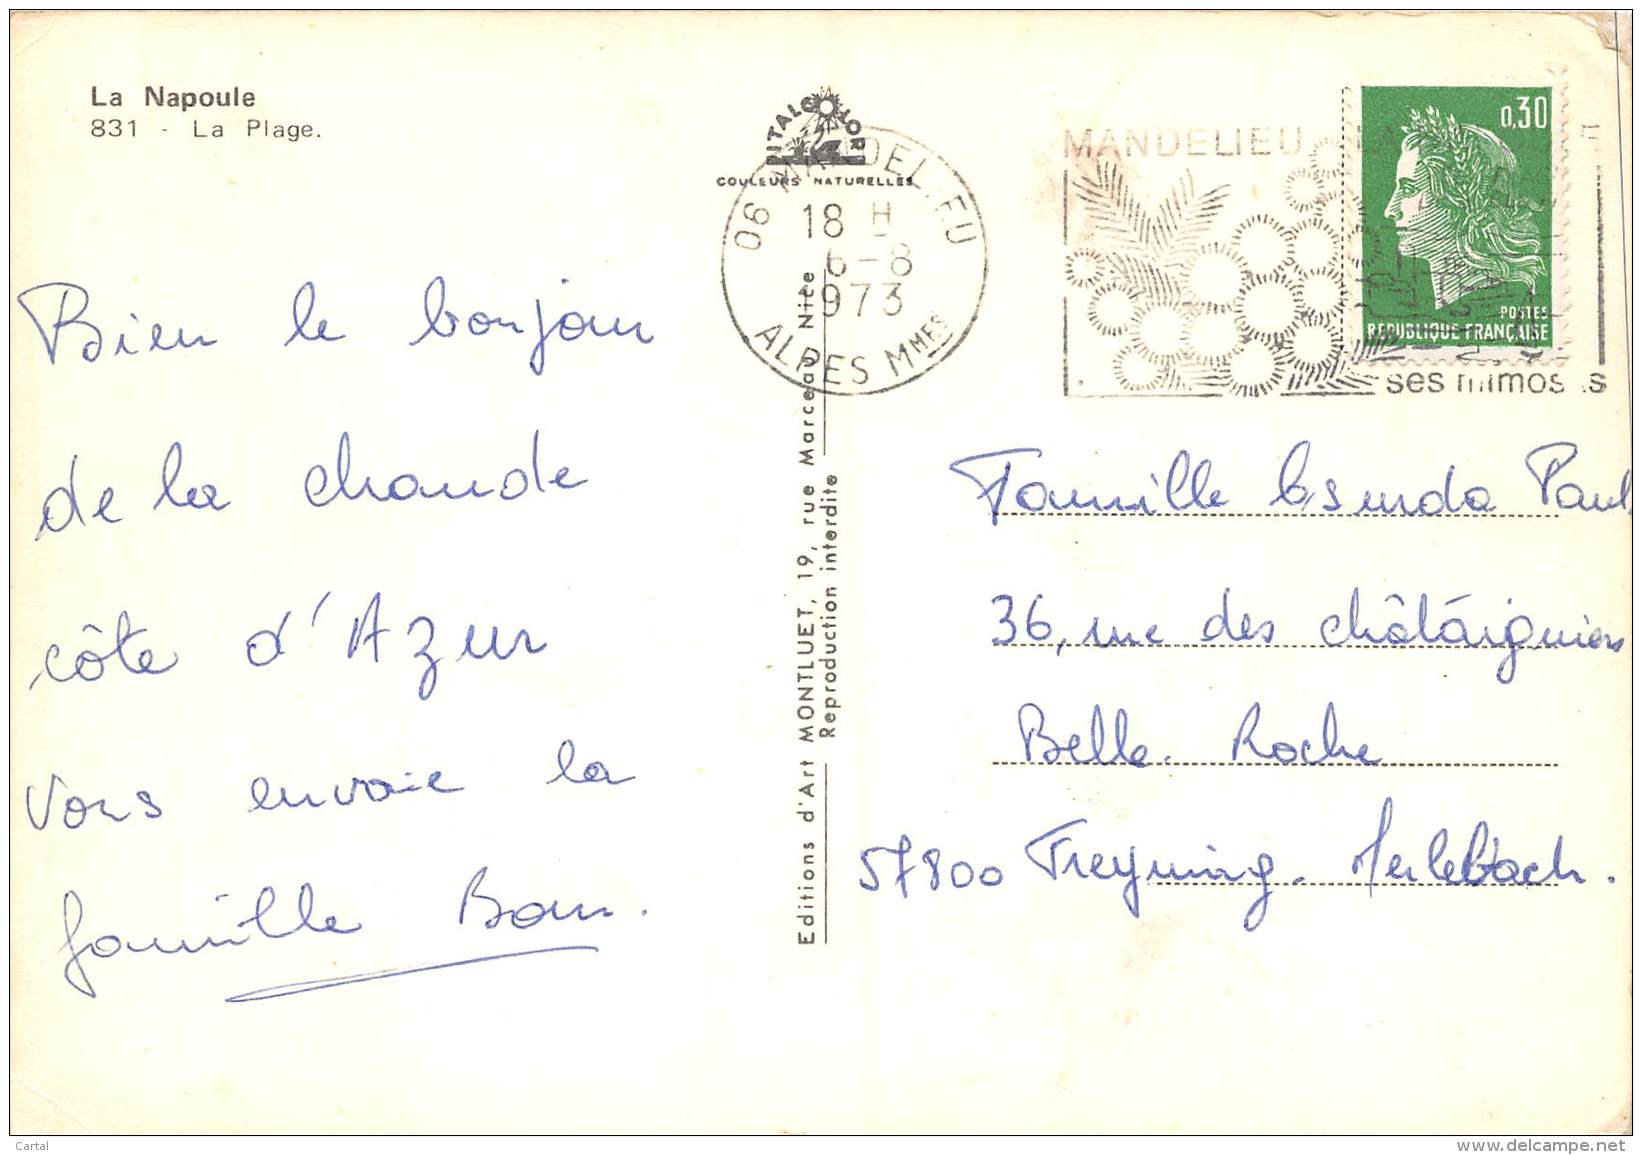 La Napoule
831 - La Plage.
VITALCOLOR
COULEURS NATURELLES
06 MANDELIEU
18 H
6-8
1973
ALPES MMES
MANDELIEU
ses mimosas
0,30
POSTES
REPUBLIQUE FRANÇAISE
Bien le bonjour
de la chaude
côte d'Azur
vous envoie la
famille
Editions d'Art MONTLUET, 19, rue Marceau Nice
Reproduction interdite
Famille Paul
36, rue des châtaigniers
Belle-Roche
57800 Freyming-Merlebach.
Cartal
www.delcampe.net